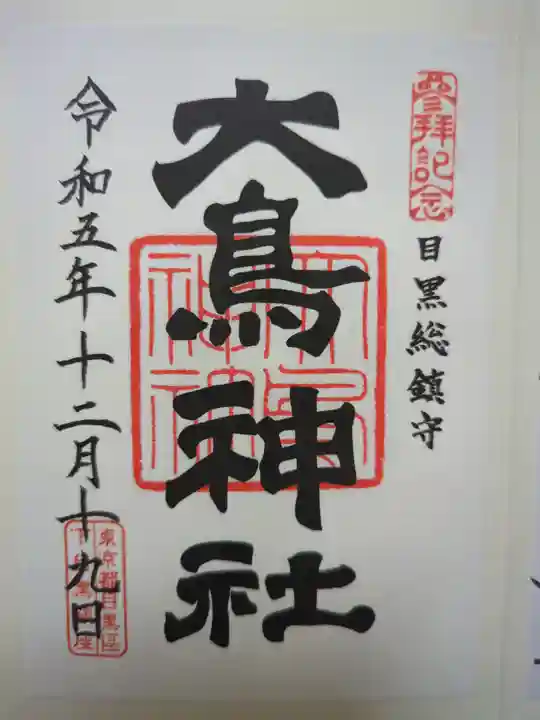 參拜記念
目黒総鎮守
大鳥神社
大鳥神社
令和五年十二月十九日
東京都目黒区